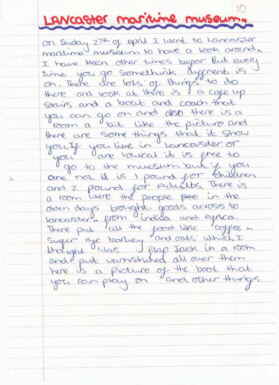 10
Lancaster maritime museum.
on Sunday 27th of april I went to Lancaster
maritime museum to have a look around.
I have been other times bepor But every
time you go Somethink different is
on. There are lots of things to do
there and look at there is I a cafe up
Stairs and a boat and coach that
you can go on and also there is a
room a bit like the picture and
there are some things that it show
you If you live in Lancaster or
you are lowcal it is free to
go to the museum but if you
are not it is 1 pound for children
and 2 pound for Adults. There is
a room were the people free in the
oldn days brought goods across to
Lancaster from india and africa.
There put all the food like coffee
Suger rye barley and oats which I
thought was
put Jack in a room
and put varnished all over them
here is a picture of the boat that
you can play on and other things.